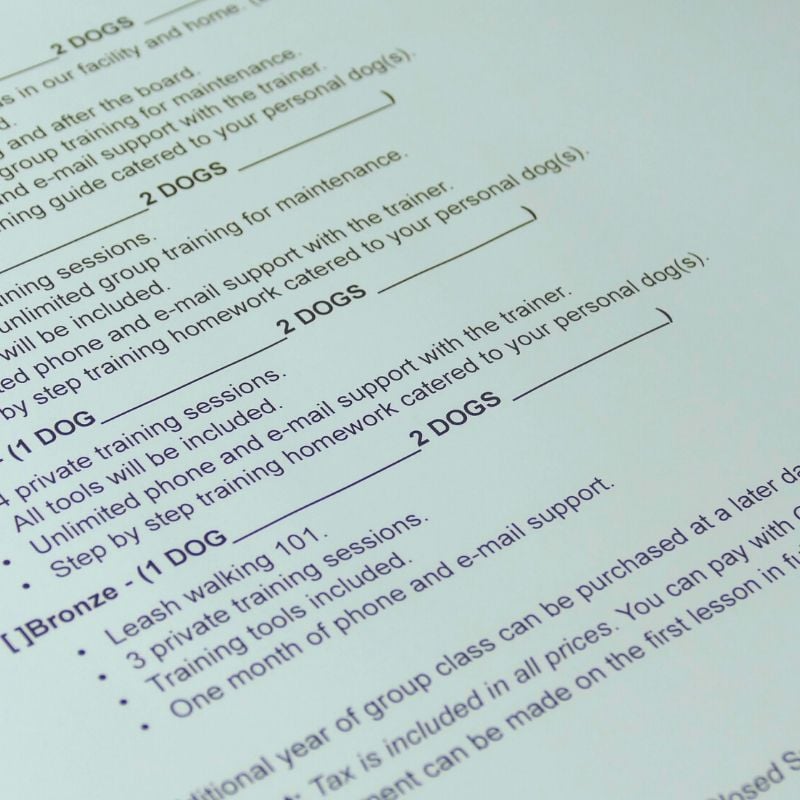 2 DOGS
in our facility and home.
and after the board.
group training for maintenance.
and e-mail support with the trainer.
guide catered to your personal dog(s).
2 DOGS )
sessions.
unlimited group training for maintenance.
will be included.
phone and e-mail support with the trainer.
by step training homework catered to your personal dog(s).
- (1 DOG 2 DOGS )
4 private training sessions.
All tools will be included.
• Unlimited phone and e-mail support with the trainer.
• Step by step training homework catered to your personal dog(s).
[ ]Bronze - (1 DOG 2 DOGS )
• Leash walking 101.
• 3 private training sessions.
• Training tools included.
• One month of phone and e-mail support.
year of group class can be purchased at a later
Tax is included in all prices. You can pay with
can be made on the first lesson in